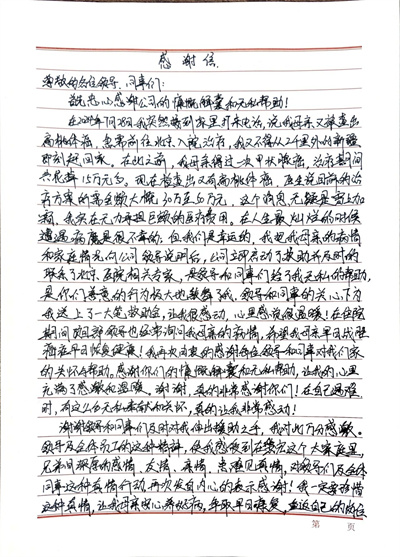 感谢信
尊敬的各位领导、同事们:
首先衷心感谢公司的慷慨解囊和无私帮助!
在2019年7月28日我突然接到家里打来电话,说我母亲又检查出
扁桃体癌,急需前往北京入院治疗,我又不得从2千里外的新疆
即刻赶回家。在此之前,我母亲得过一次甲状腺癌,治疗期间
共花掉15万元多。现在检查出又有扁桃体癌,医生说目前的治
疗方案的资金数大概30万至50万元,这个消息无疑是雪上加
霜,我实在无力再担巨额的医疗费用。在人生最灿烂的时候
遭遇病魔是很不幸的,但我们是幸运的,我把我母亲的病情
和家庭情况向公司领导说明后,公司立即启动了援助并及时的
联系了北京医院相关专家,是领导和同事们给了我无私的帮助,
是你们善意的行为极大地鼓舞了我。领导和同事的关心下为
我送上了一大笔救助金,让我很感动,心里感觉很温暖!在住院
期间项目部领导也经常询问我母亲的病情,希望我母亲早日战胜
癌症早日恢复健康!我再次由衷的感谢各位领导和同事对我们家
的关怀和帮助。感谢你们的慷慨解囊和无私帮助,让我的心里
充满了感激和温暖。谢谢,真的非常感谢你们!在自己遇难
时,有这么的无私奉献和关怀,真的让我非常感动!
谢谢领导和同事们及时对我伸出援助之手,我对此万分感激。
领导及全体员工的这种精神,使我感受到在这个大家庭里,
见并日积厚的感情、友情、亲情,患难见真情,对领导们及全体
同事这种真情行动,再次发自内心的表示感谢!我一定要珍惜
这种真情,让我母亲安心养好病,争取早日康复,
第 页